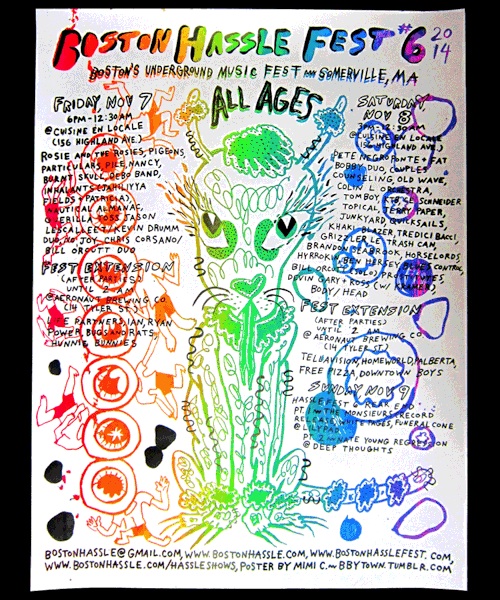 BOSTON HASSLE FEST #6 2014
BOSTON'S UNDERGROUND MUSIC FEST ~ SOMERVILLE, MA
ALL AGES
FRIDAY, NOV 7
6PM-12:30AM
@CUISINE EN LOCALE
(156 HIGHLAND AVE.)
ROSIE AND THE ROSIES, PIGEONS,
PARTICULARS, PILE, NANCY,
BURNT SKULL, DEBO BAND,
INHALANTS (JAHILIYYA
FIELDS + PATRICIA),
NAUTICAL ALMANAC,
GUERILLA TOSS, JASON
LESCALLEET / KEVIN DRUMM
DUO, NO JOY, CHRIS CORSANO/
BILL ORCUTT DUO
FEST EXTENSION
(AFTER PARTIES)
UNTIL 2 AM
@AERONAUT BREWING CO.
(14 TYLER ST.)
PARTNERS, IAN, RYAN
POWER, BUGS AND RATS,
HUNNIE BUNNIES
SATURDAY,
NOV 8
2PM-12:30AM
@CUISINE EN LOCALE
(156 HIGHLAND AVE.)
PETE NEGROPONTE + FAT
BOBBY DUO, COUPLES
COUNSELING, OLD WAVE,
COLIN L. ORCHESTRA,
TOMBOY, SCHNEIDER
TOPICAL, TERRY, PAPER,
JUNKYARD, QUICKSAILS,
KHAKI BLAZER, TREDICI BACCI,
GRIZZLER, LE TRASH CAN,
BRANDON SEABROOK, HORSELORDS
HYRROKKIN, BEN HERSEY BLUES CONTROL
BILL ORCUTT (SOLO), PROSTITUTES,
DEVIN GARY + ROSS (W/ KRAMER)
BODY/HEAD
FEST EXTENSION
(AFTER PARTIES)
UNTIL 2 AM
@ AERONAUT BREWING CO.
(14 TYLER ST.)
TELUAVISION, HOMEWORLD, PALBERTA,
FREE PIZZA, DOWNTOWN BOYS
SUNDAY NOV 9
HASSLEFEST 6 REAR END
PT. 1 ~ THE MONSIEURS RECORD
RELEASE, WHITE PAGES, FUNERAL CONE
@ LILYPAD
PT. 2 ~ NATE YOUNG REGRESSION
@ DEEP THOUGHTS
BOSTONHASSLE@GMAIL.COM, WWW.BOSTONHASSLE.COM, WWW.BOSTONHASSLEFEST.COM,
WWW.BOSTONHASSLE.COM/HASSLESHOWS, POSTER BY MIMI C. ~ BBYTOWN.TUMBLR.COM